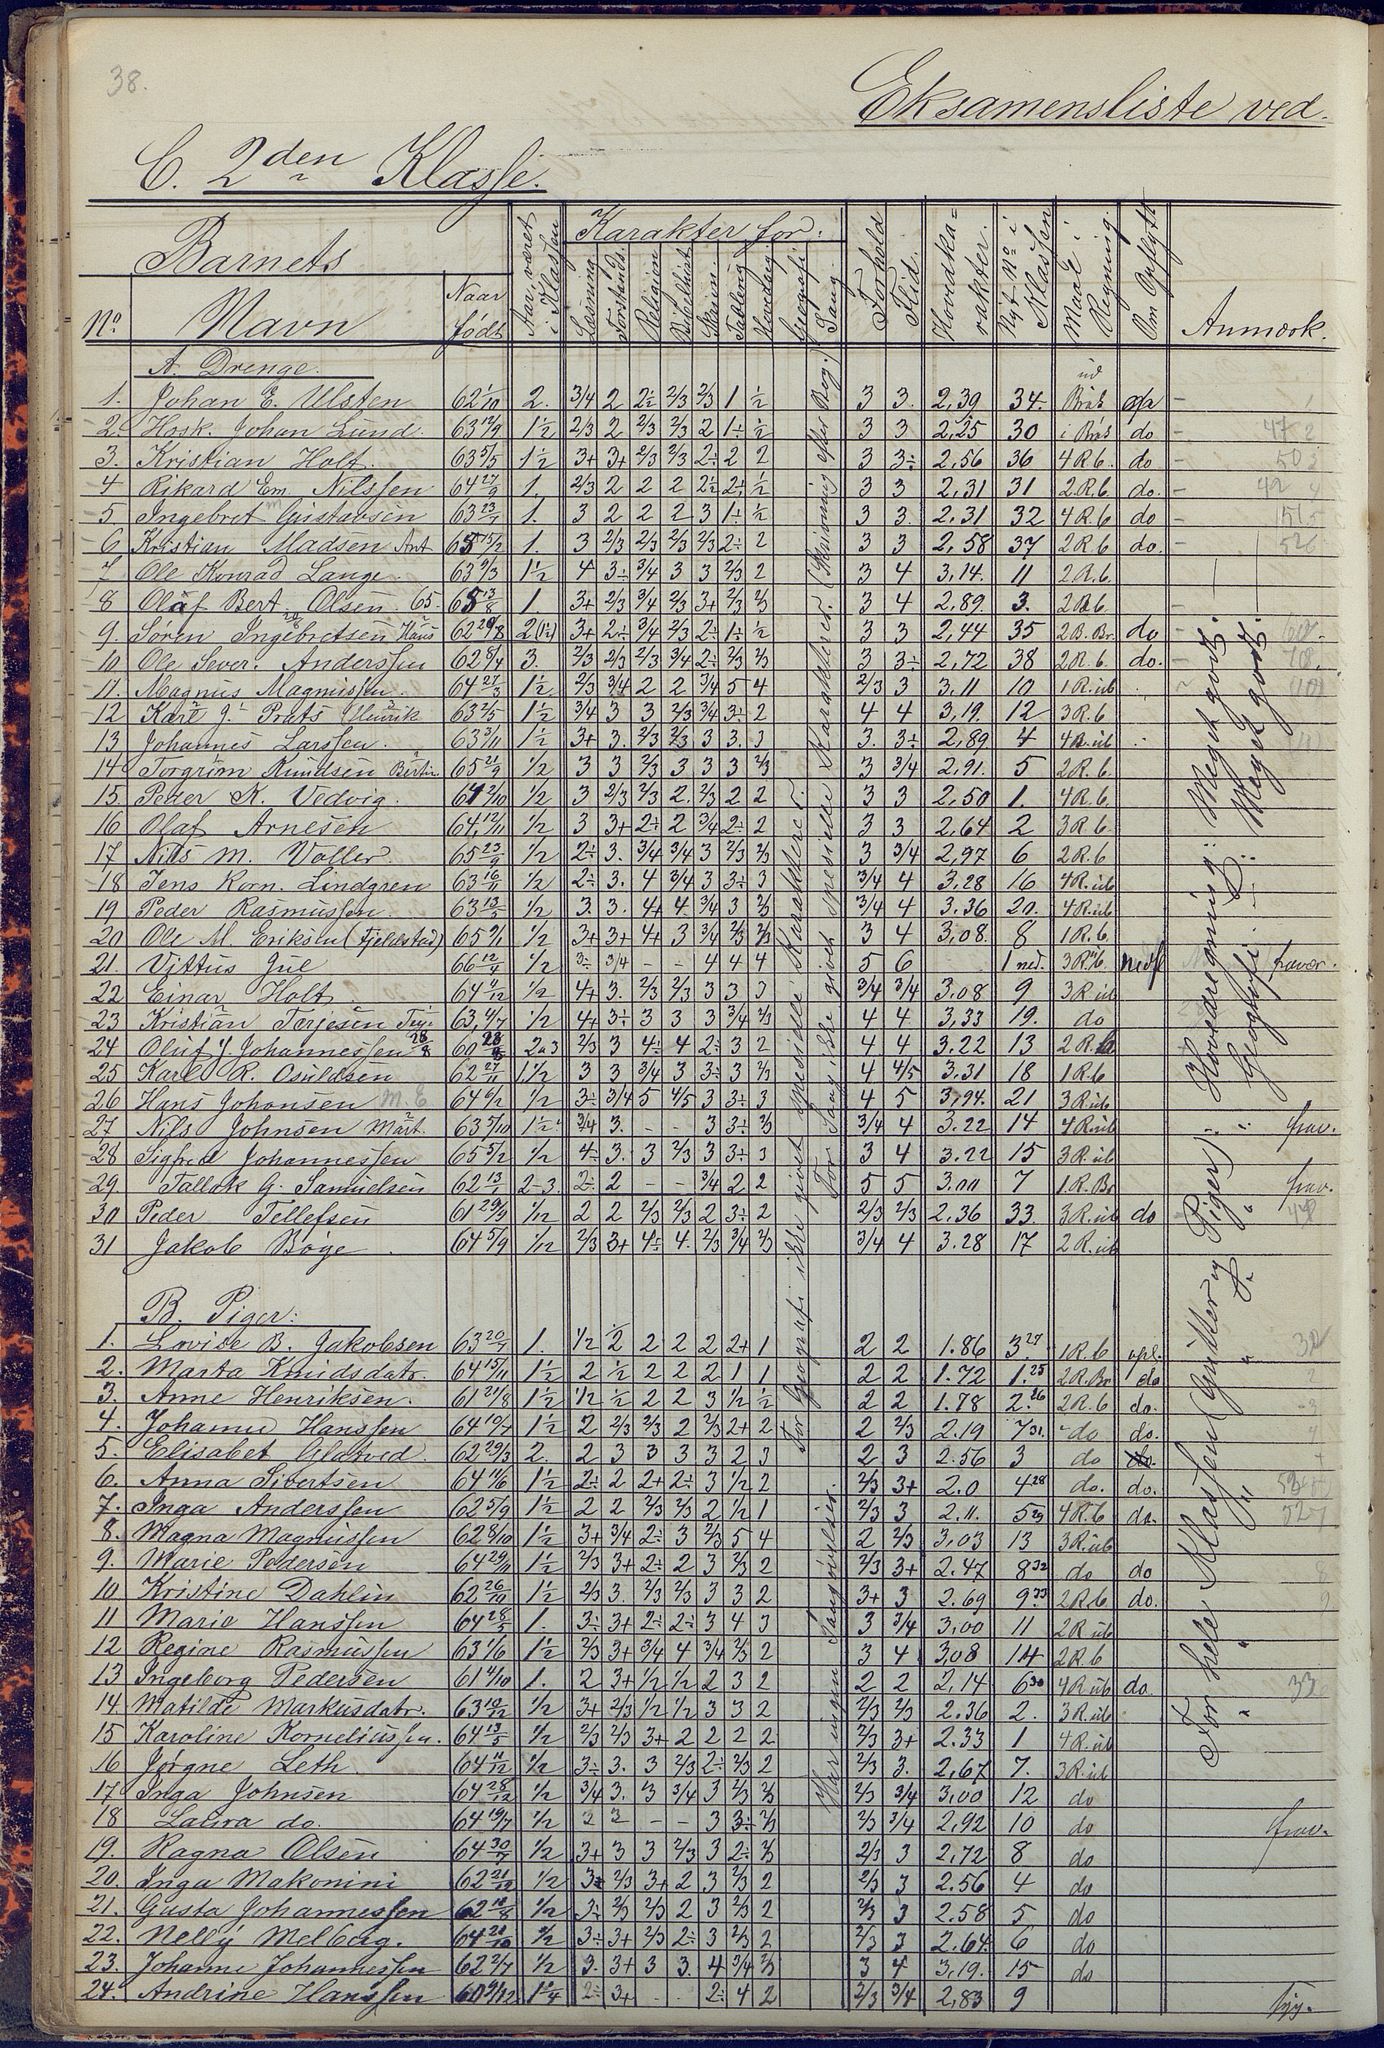 38.
Eksamensliste ved
C. 2den Klasse.
Barnets
No. Navn Naar født Aar været i Klassen Karakter for: Læsning Forstands. Religion Bibelhist. Skrivn. Tavlereg Hovedreg Geografi Sang Forhold Flid. Hovedkarakter. Nyt No i Klassen Maal i Regning Om Opflytt. Anmærk.
A. Drenge.
1. Johan E. Ulsten 62 1/10 2. 3/4 2 2÷ 2/3 2/3 1 1/2 3 3. 2,39 34. Brøk op
2. Hosk. Johan Lund 63 12/9 1 1/2 2/3 2 2/3 2/3 2 1÷ 1/2 3 3 2,25 30 i Brøk do
3. Kristian Holt 63 5/5 1 1/2 3+ 3+ 2/3 2/3 2÷ 2 2 3 3÷ 2,56 36 4 R b. do
4 Rikard Em. Nilssen 64 27/9 1. 2/3 2 2 2 2÷ 2÷ 1/2 3 3 2,31 31 2 R. b do.
5 Ingebret Gustavsen 63 23/7 1. 3 2 2 2 3 1÷ 1/2 3 3. 2,31 32 4 R b do
6 Kristian Madsen Ant 65 15/2 1. 3 2/3 2/3 2/3 2/3 2÷ 2 3 3 2,58 37 2 R b do.
7 Ole Konrad Lange 63 9/3 1 1/2 4 3÷ 3/4 3 3 2/3 2 3 4 3,14. 11 2 R. b.
8 Olaf Bert. Olsen. 65. 65 13/8 1. 3+ 2/3 3/4 2/3 3+ 2/3 2/3 3 4 2,89. 3. 2 R b.
9. Søren Ingebretsen Hans 62 29/8 2 (1 1/2) 3+ 2÷ 3/4 2/3 2÷ 1÷ 1/2 3 3 2,44 35 2 B. Br. do
10. Ole Sever. Anderssen 62 8/4 3. 2/3 2/3 2/3 3/4 2÷ 2/3 2/3 3 3÷ 2,72 38 2 R. b. do.
11. Magnus Magnussen. 64 27/3 1 1/2 2/3 3/4 2 2 3/4 5 4 2/3 3 3,11 10 1 R. ub
12 Karl J. Prats Henrik 63 2/5 1 1/2 3/4 3 3 2/3 3/4 3÷ 2 4 4 3,19. 12 3 R. b
13 Johannes Larssen. 63 3/11 1 1/2 3+ 3. 2/3 2/3 3 3. 3 3. 3÷ 2,89 4 4 R. ub
14 Torgrim Knudsen Bertin 65 21/9 1/2 3 3 2/3 3 3 3 2/3 3 3/4 2,91. 5 2 R. b.
15. Peder K. Vedvig. 64 2/10 1/2 3 2/3 2/3 2. 2/3 2 2 3 3 2,50 1. 4 R. b.
16 Olaf Arnesen 64 12/11 1/2 3 3+ 2÷ 2 3/4 2÷ 2 3 3 2,64 2 3 R. b.
17 Nils M. Voller 65 23/9 1/2 2÷ 3. 3/4 3/4 3 2/3 2/3 3 3/4 2,97 6 2 R. b
18 Jens Korn. Lindgren 63 16/11 1/2 2÷ 3. 4 3/4 3 3÷ 3 3/4 4 3.28 16 4 R. ub
19 Peder Rasmussen. 63 13/5 1/2 3. 3. 4+ 4 3/4 3 2/3 3/4 4 3.36 20. 4 R. ub
20 Ole M. Eriksen (Fjeldstad) 65 9/1 1/2 3+ 3+ 4+ 3 3/4 2/3 2/3 3 4 3,08. 8 1 R. b.
21. Vittus Jul 66 12/4 1/2 3÷ 3/4 - - 4 4 4 5 6 1 ned. 3 R ub nedfl fravær.
22 Einar Holt. 64 4/12 1/2 4+ 3. 2/3 2/3 3 3 3 3/4 3/4 3.08 9 3 R ub
23 Kristian Terjesen Terj. 63, 4/7 1/2 4+ 3÷ 3 3 3 3/4 2/3 4 4 3,33 19. do
24 Oluf J. Johannessen 28/8 60 28/8 2 a 3 2/3 3 4÷ 4 2÷ 3 2 4 4 3.22 13 2 R.
25 Karl R. Osuldsen 62 27/11 1 1/2 3 3 3/4 3 3÷ 3 2/3 4 4/5 3.31 18 1 R. b
26 Hans Johansen M. E 64 6/2 1/2 3÷ 3/4 5 4/5 3 3÷ 3 4 5 3,94. 21 3 R. ub
27 Nils Johnsen Mart. 63 5/10 1 1/2 3/4 3. - - 3 3÷ 2/3 3/4 4 3.22 14 4 R. ub frav.
28 Sigfred Johannessen 65 5/2 1/2 4÷ 3. 3 2/3 3 3÷ 3 3 4 3.22 15 3 R. ub
29. Tallak G. Samuelsen 62 13/1 2-3. 2÷ 2 - - 3/4 2 2 5 5 3.00 7 1 R. Br frav.
30 Peder Tellefsen 61 29/9 1/12 2 2 2/3 2/3 2 3÷ 2 2/3 2/3 2.36 33 3 R. ub do
31 Jakob Bøge 64 5/9 1/12 2/3 3+ 4÷ 4. 2/3 3/4 2/3 3/4 4 3.28 17 2 R. ub
B. Piger:
1. Lovise B. Jakobsen 63 20/7 1. 1/2 1/2 2 2 2 2+ 1 2 2 1.86 3. 27 1 R. b opl.
2. Marta Knudsdatr. 64 15/11 1 1/2 2 1/2 2 2 2 1 1 2 2 1.72 1. 25 2 R. Br do
3. Anne Henriksen. 61 21/8 1 1/2 1/2 1/2 2 2 3 1/2 1/2 2 2 1.78 2. 26 2 R. b do.
4. Johanne Hanssen 64 10/7 1 1/2 2 2/3 2/3 2 2/3 2+ 2 2 2/3 2.19 7 31. do do.
5. Elisabet Glatved. 62 29/3 2. 2 3 3 3 3 2 3 2 3 2.56 3 do do.
6. Anna Sivertsen 64 11/6 1 1/2 2÷ 2 2+ 2÷ 3 1/2 2 2/3 3+ 2.0 4 28 do. do.
7. Inga Anderssen 62 5/9 1 1/2 2 2 2/3 2/3 2 1/2 1 2/3 3 2.11. 5 29 4 R. b do.
8. Magna Magnussen 62 8/10 1 1/2 3+ 3/4 2÷ 3 2/3 5 4 2 2/3 3,03 13 3 R. ub
9. Marie Pedersen 64 29/11 1 1/2 2/3 3+ 2÷ 2 3 2/3 2 2/3 3+ 2.47 8 32 do do
10 Kristine Dahlin 62 26/10 1 1/2 2/3 3. 2/3 2/3 3 3 2 3+ 3 2.69 9. 33 2 R b do.
11 Marie Hanssen 64 28/5 1. 3÷ 3+ 2÷ 2÷ 3 4 3 3 3/4 3,00 11 2 R ub
12 Regine Rasmussen 63 1/6 1 1/2 2/3 3+ 3/4 4 3/4 2/3 2 3 4 3,08 14 2 R. b
13 Ingeborg Pedersen 61 4/10 1. 2 3+ 1/2 1/2 2 3 2 2 2 2,14 6 30 4 R ub do
14. Matilde Markusdatr. 63 10/12 1/2 3+ 2/3 1/2 1/2 3 3 2 2/3 2/3 2.36 2. 3 R. ub
15 Karoline Korneliussen. 64 13/5 1/2 2/3 2/3 3+ 2 2 2 2 2/3 3+ 2.33 1 4 R. ub
16 Jørgne Leth. 64 11/12 1/2 3÷ 3. 3 2/3 2÷ 2/3 2 2/3 3. 2,67 7. 3 R. ub
17 Inga Johnsen 64 28/12 1/2 3/4 3. 3 3/4 3 2/3 2/3 2/3 3/4 3,00 12 do
18 Laura do. 64 19/7 1/2 2 3 - - 3 3÷ 2/3 2/3 3/4 2,92 10 do frav.
19. Ragna Olsen 64 30/7 1/2 3+ 3 3 2/3 3 2÷ 2/3 2/3 3 2,72 8 do
20. Inga Makonini 62 21/12 1/2 3+ 2/3 3+ 2 3 2/3 2 2/3 3 2.56 4 do
21. Gusta Johannessen 62 10/8 1/2 3÷ 2/3 2/3 2 3 2/3 2 2/3 3 2.58 5 do
22. Nelly Melberg. 64 20/10 1/2 3÷ 3+ 2/3 2÷ 3 2/3 2 2/3 3 2.64. 6 do
23. Johanne Johannessen 62 2/7 1/2 3. 3+ 3 3. 4 3/4 2/3 3 4 3,19. 15 do
24. Andrine Hanssen 60 9/12 1 1/4 2÷ 3+ - - 2÷ 4 2 2/3 3/4 2,83 9 syg.
For Geografi ikke givet spesielle Karakterer.
Har ingen Sangøvelser.
For Sang ikke givet spesielle Karakterer. (Skrivning efter Bog.)
For hele Klassen (Gutter og Piger). Hovedregning: Meget godt.
" " " " " Geografi: Meget godt.